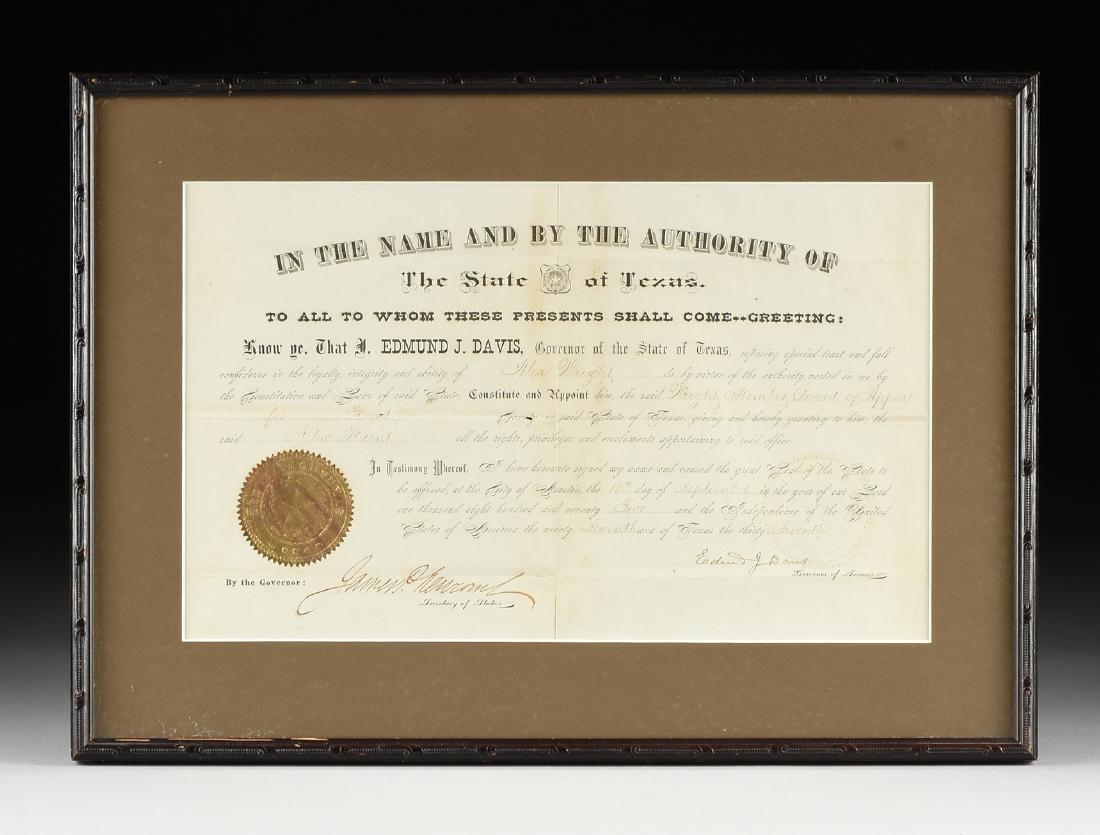 IN THE NAME AND BY THE AUTHORITY OF
The State of Texas.
TO ALL TO WHOM THESE PRESENTS SHALL COME--GREETING:
Know ye, That I, EDMUND J. DAVIS, Governor of the State of Texas, reposing special trust and full
confidence in the loyalty, integrity and ability of Alex Wright do by virtue of the authority vested in me by
the Constitution and Laws of said State, Constitute and Appoint him, the said Wright Member Board of Appeal
for Hunt County in said State of Texas, giving and hereby granting to him, the
said all the rights, privileges and emoluments appertaining to said office.
In Testimony Whereof, I have hereunto signed my name and caused the great Seal of the State to
be affixed, at the City of Austin, the 18th day of September in the year of our Lord
one thousand eight hundred and seventy Two and the Independence of the United
States of America the ninety Seventh and of Texas the thirty Seventh
Edmund J. Davis
Governor of Texas
By the Governor:
James P. Newcomb
Secretary of State